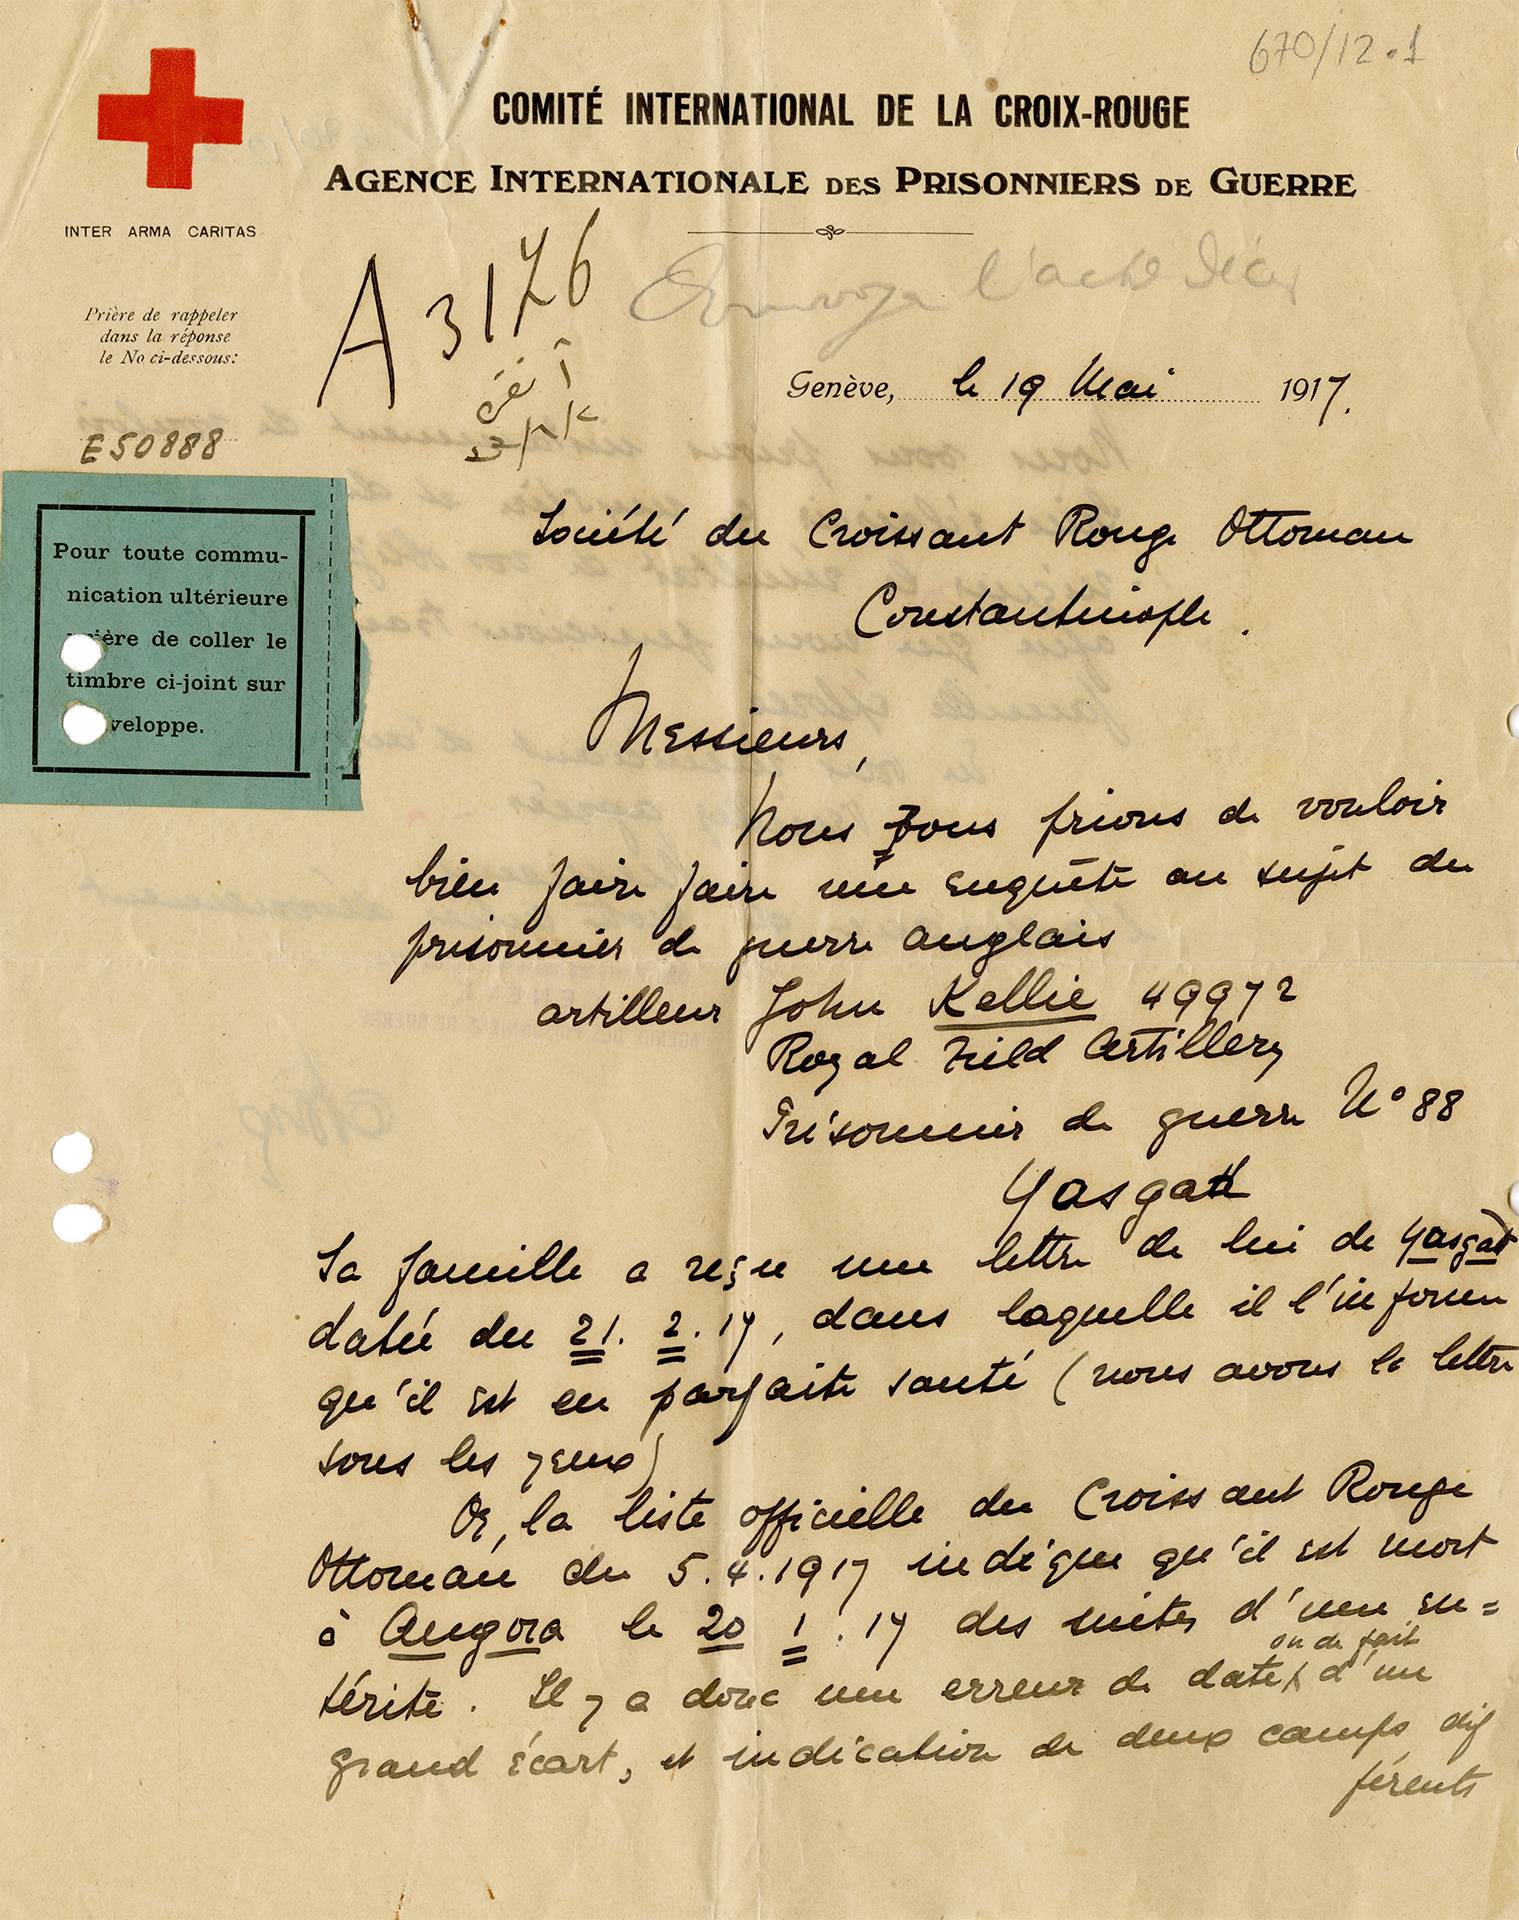 670/12.1
COMITÉ INTERNATIONAL DE LA CROIX-ROUGE
AGENCE INTERNATIONALE DES PRISONNIERS DE GUERRE
INTER ARMA CARITAS
A 3176
l'acte
Prière de rappeler
dans la réponse
le No ci-dessous:
Genève, le 19 Mai 1917.
E50888
Pour toute commu-
nication ultérieure
ière de coller le
timbre ci-joint sur
veloppe.
Société du Croissant Rouge Ottoman
Constantinople.
Messieurs,
Nous vous prions de vouloir
bien faire faire une enquête au sujet du
prisonnier de guerre anglais
artilleur John Kellie 49972
Royal Field Artillery
Prisonnier de guerre N° 88
Yasgad
Sa famille a reçu une lettre de lui de Yasgad
datée du 21. 2. 17, dans laquelle il l'informe
qu'il est en parfaite santé (nous avons la lettre
sous les yeux)
Or, la liste officielle du Croissant Rouge
Ottoman du 5.4.1917 indique qu'il est mort
à Angora le 20 1. 17 des suites d'une en=
térite. Il y a donc une erreur de date, ou de fait d'un
grand écart, et indication de deux camps dif
férents